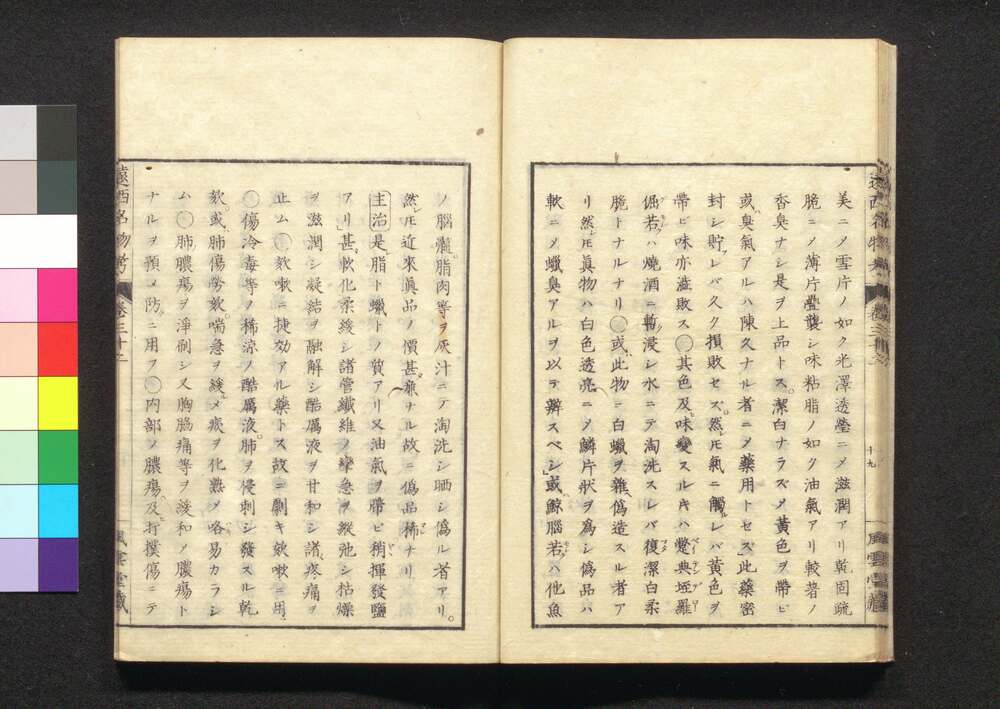 美ニノ雪片ノ如ク光澤透瑩ニメ滋潤アリ乾固疏
脆ニノ薄片疊襲シ味粘脂ノ如ク油氣アリ較著ノ
香臭ナシ是ヲ上品トス潔白ナラズメ黃色ヲ帶ビ
或臭氣アルハ陳久ナル者ニメ藥用トセズ此藥密
封シ貯レバ久ク損敗セズ然𪜈氣ニ觸レバ黃色ヲ
帶ビ味亦敗ス○其色及味變スルキハ蹩典埡羅
倔若ハ燒酒ニ暫浸シ水ニテ淘洗スレバ復潔白柔
脆トナルナリ○或此物ニ白蠟ヲ雜偽造スル者ア
リ然𪜈眞物ハ白色透亮ニノ鱗片狀ヲ爲シ偽品ハ
軟ニメ蠟臭アルヲ以テ辨スベシ或鯨腦若ハ他魚
十九
ノ腦髓脂肉等ヲ灰汁ニテ淘洗シ晒シ偽ル者アリ
然𪜈近來眞品ノ價甚廉ナル故ニ偽品稀ナリ
主治 是脂ト蠟トノ質アリ又油氣ヲ帶ビ稍揮發鹽
アリ甚軟化柔緩シ諸管纖維ノ攣急ヲ縱弛シ枯燥
ヲ滋潤シ凝結ヲ融解シ酷厲液ヲ甘和シ諸疼痛ヲ
止ム○欬嗽ニ捷効アル藥トス故ニ劇キ欬嗽ニ用
○傷冷毒等ノ稀涼ノ酷厲液肺ヲ侵刺シ發スル乾
欬或肺傷勞欬喘急ヲ緩メ痰ヲ化熟メ咯易カラシ
ム○肺膿瘍ヲ淨制シ又胸脇痛等ヲ緩和ノ膿瘍ト
ナルヲ預メ防ニ用フ○內部ノ膿瘍及打撲傷ニテ
遠西名物考 卷三十二
風雲堂藏